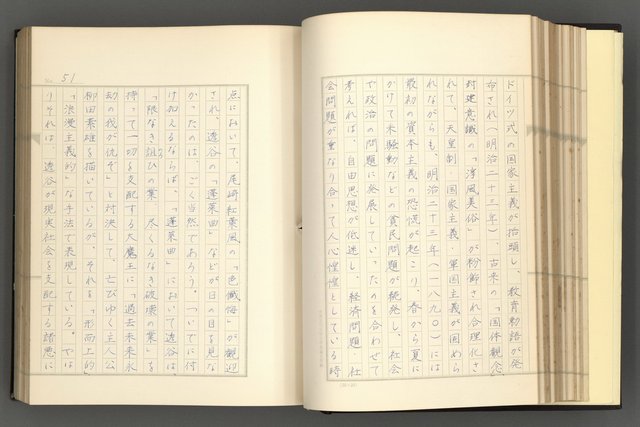 ドイツ式の国家主義が抬頭し、教育勅語が発
布され（明治二十三年）、古来の「国体観念
封建意識の「淳風美俗」が粉飾され合理化さ
れて、天皇制・国家主義・軍国主義が固めら
れながらも、明治二十三年（一八九〇）には
最初の資本主義の恐慌が起こり、春から夏に
かけて米騒動などの貧民問題が続発し、社会
で政治の問題に発展していったのを合わせて
考えれば、自由思想が低迷し、経済問題・社
会問題が重なり合って人心惶惶としている時
点において、尾崎紅葉風の「色懺悔」が歓迎
され、透谷の「蓬莱曲」などが日の目を見な
かったのは、ごく当然であろう。ついでに付
け加えるならば、「蓬莱曲」において透谷は、
「限なき詛ひの業、尽くるなき破壊の業」を
持って一切を支配する大魔王に「過去未来永
劫の我が仇ぞ」と対決して、亡びゆく主人公
柳田素雄を描いているが、それを「形而上的」
「浪漫主義的」な手法で表現している。やは
りそれは、透谷が現実社会を支配する諸悪に
51